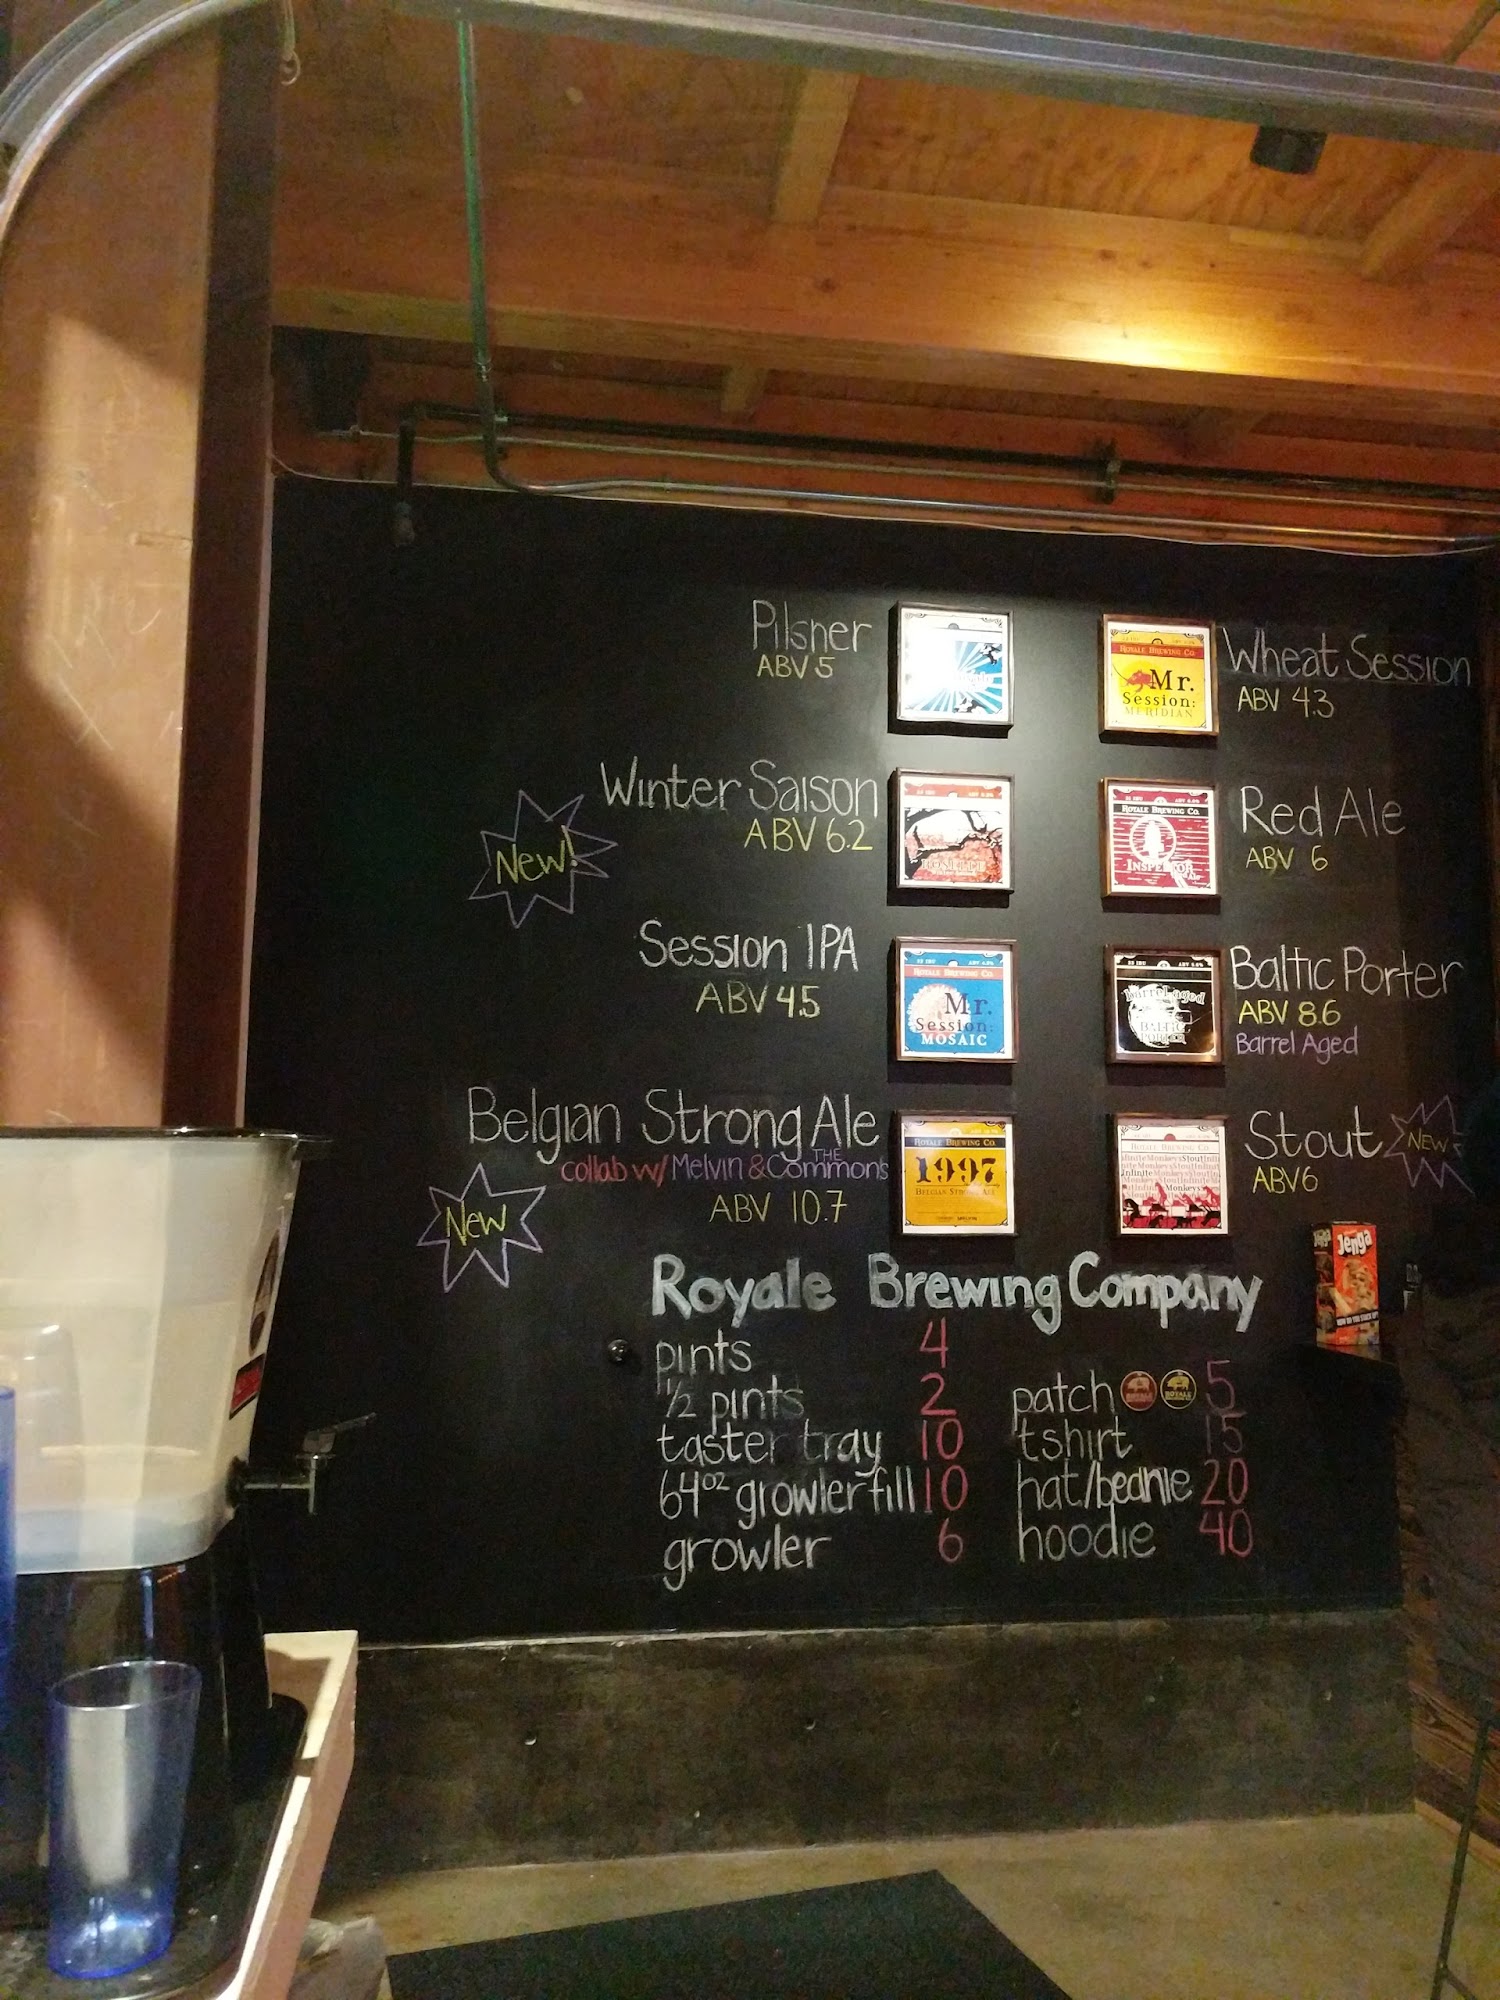 Pilsner
ABV 5
Wheat Session
ABV 4.3
ROYALE BREWING CO.
Mr.
Session:
MERIDIAN
New!
Winter Saison
ABV 6.2
Red Ale
ABV 6
ROYALE BREWING CO.
INSPECTOR
Session IPA
ABV 4.5
ROYALE BREWING CO.
Mr.
Session:
MOSAIC
barrel aged
BALTIC
PORTER
Baltic Porter
ABV 8.6
Barrel Aged
Belgian Strong Ale
collab w/ Melvin & THE Commons
ABV 10.7
New
ROYALE BREWING CO.
1997
BELGIAN STRONG ALE
ROYALE BREWING CO.
Infinite Monkeys Stout
Stout
ABV 6
NEW
Jenga
Jenga
Royale Brewing Company
pints 4
1/2 pints 2
taster tray 10
64oz growler fill 10
growler 6
patch ROYALE ROYALE 5
tshirt 15
hat/beanie 20
hoodie 40